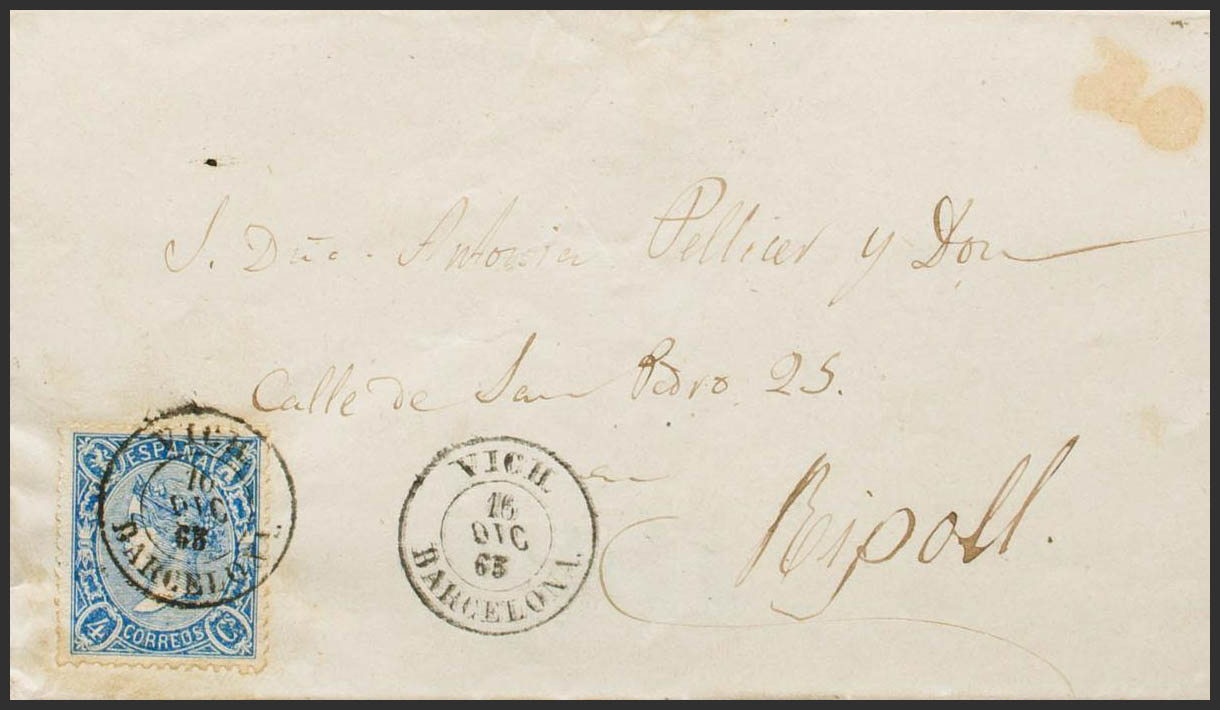 S. Dña. Antonia Pellicer y Don
Calle de San Pedro 25.
en
Ripoll.
VICH.
16
DIC
65
BARCELONA.
ESPAÑA
4 CORREOS Cs
VICH.
16
DIC
65
BARCELONA.